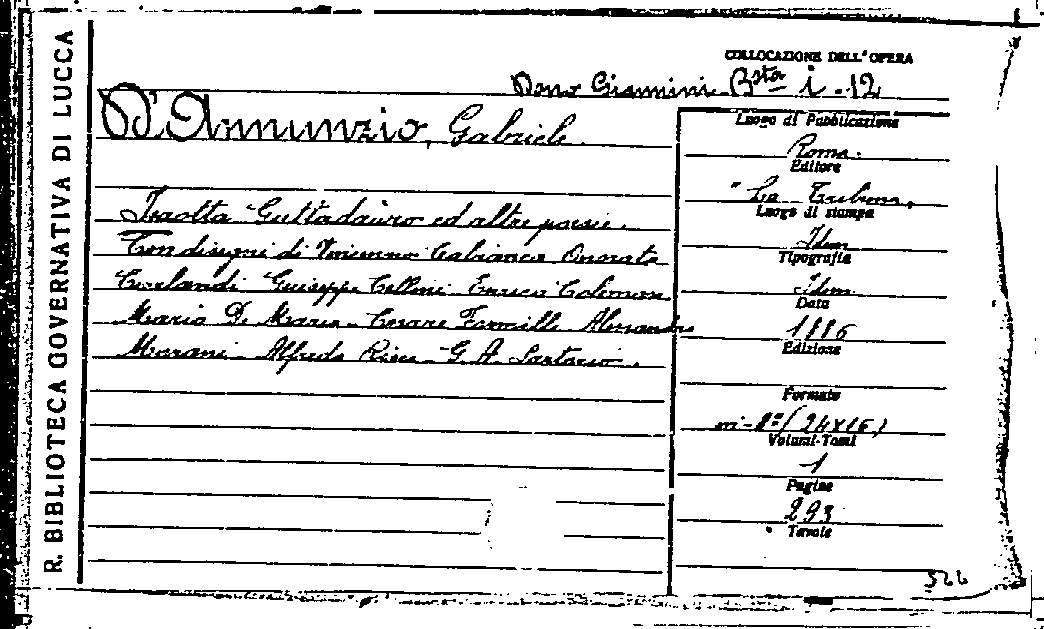 R. BIBLIOTECA GOVERNATIVA DI LUCCA
COLLOCAZIONE DELL'OPERA
Dono Giannini Bsta i - 12
D'Annunzio, Gabriele.
Isaotta Guttadauro ed altre poesie.
Con disegni di Vincenzo Cabianca Onorato
Carlandi Giuseppe Cellini Enrico Coleman
Mario De Maria - Cesare Formilli Alessandro
Morani - Alfredo Ricci - G. A. Sartorio.
Luogo di Pubblicazione
Roma.
Editore
"La Tribuna"
Luogo di stampa
Idem
Tipografia
Idem
Data
1886
Edizione
Formato
in-8º (24X16)
Volumi-Tomi
1
Pagine
293
Tavole
522